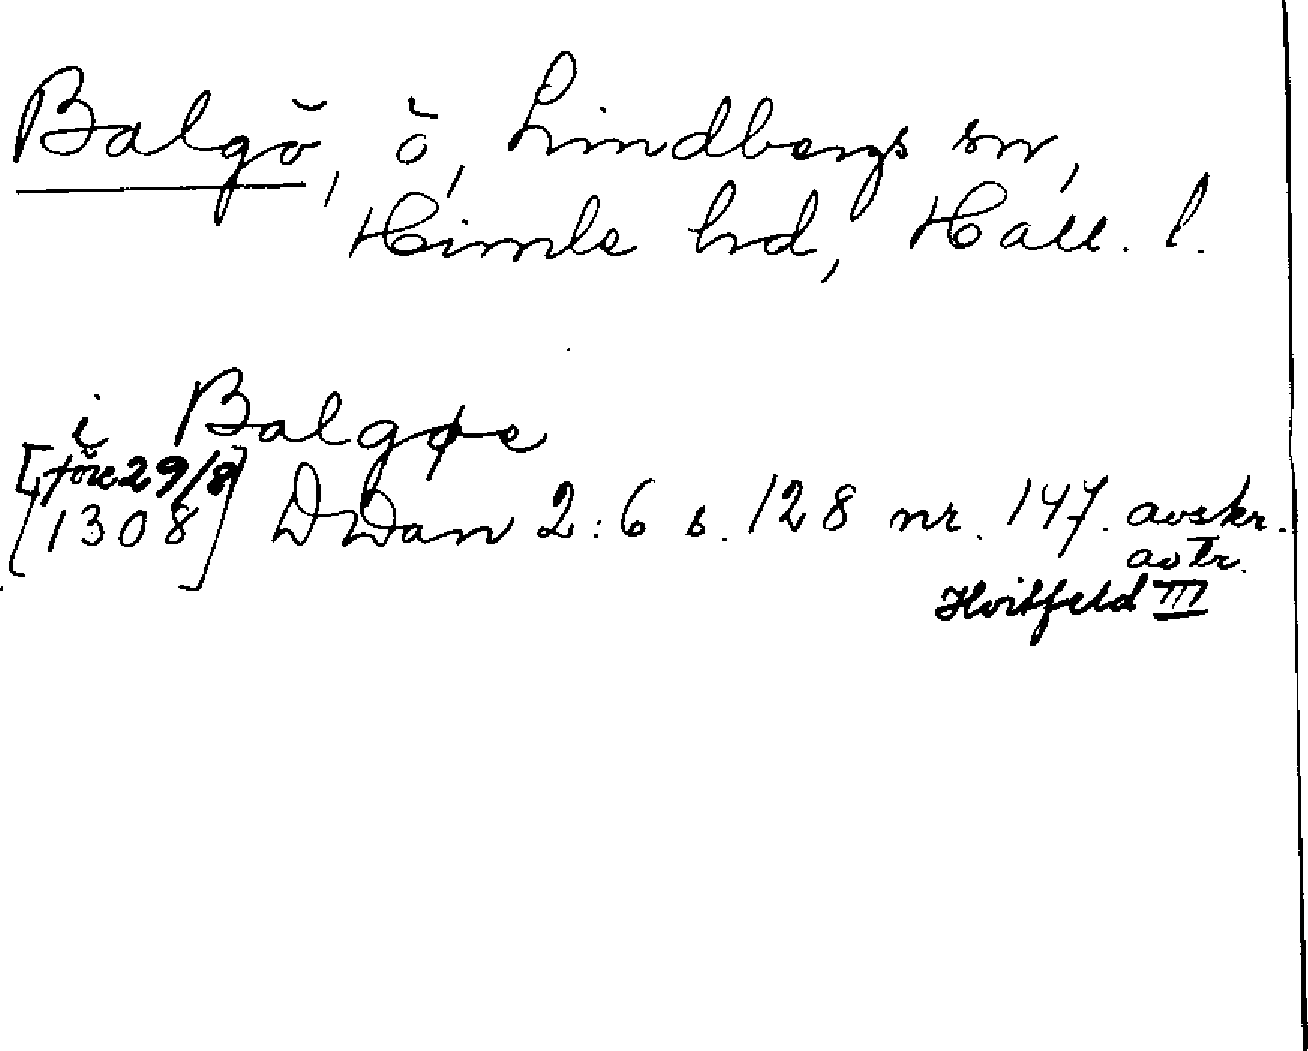 Balgö, ö, Lindbergs sn,
Himle hd, Hall. l.
i Balgøe
[före 29/8
1308] DDan 2:6 s. 128 nr. 147. avskr.
av tr.
Hvitfeld III